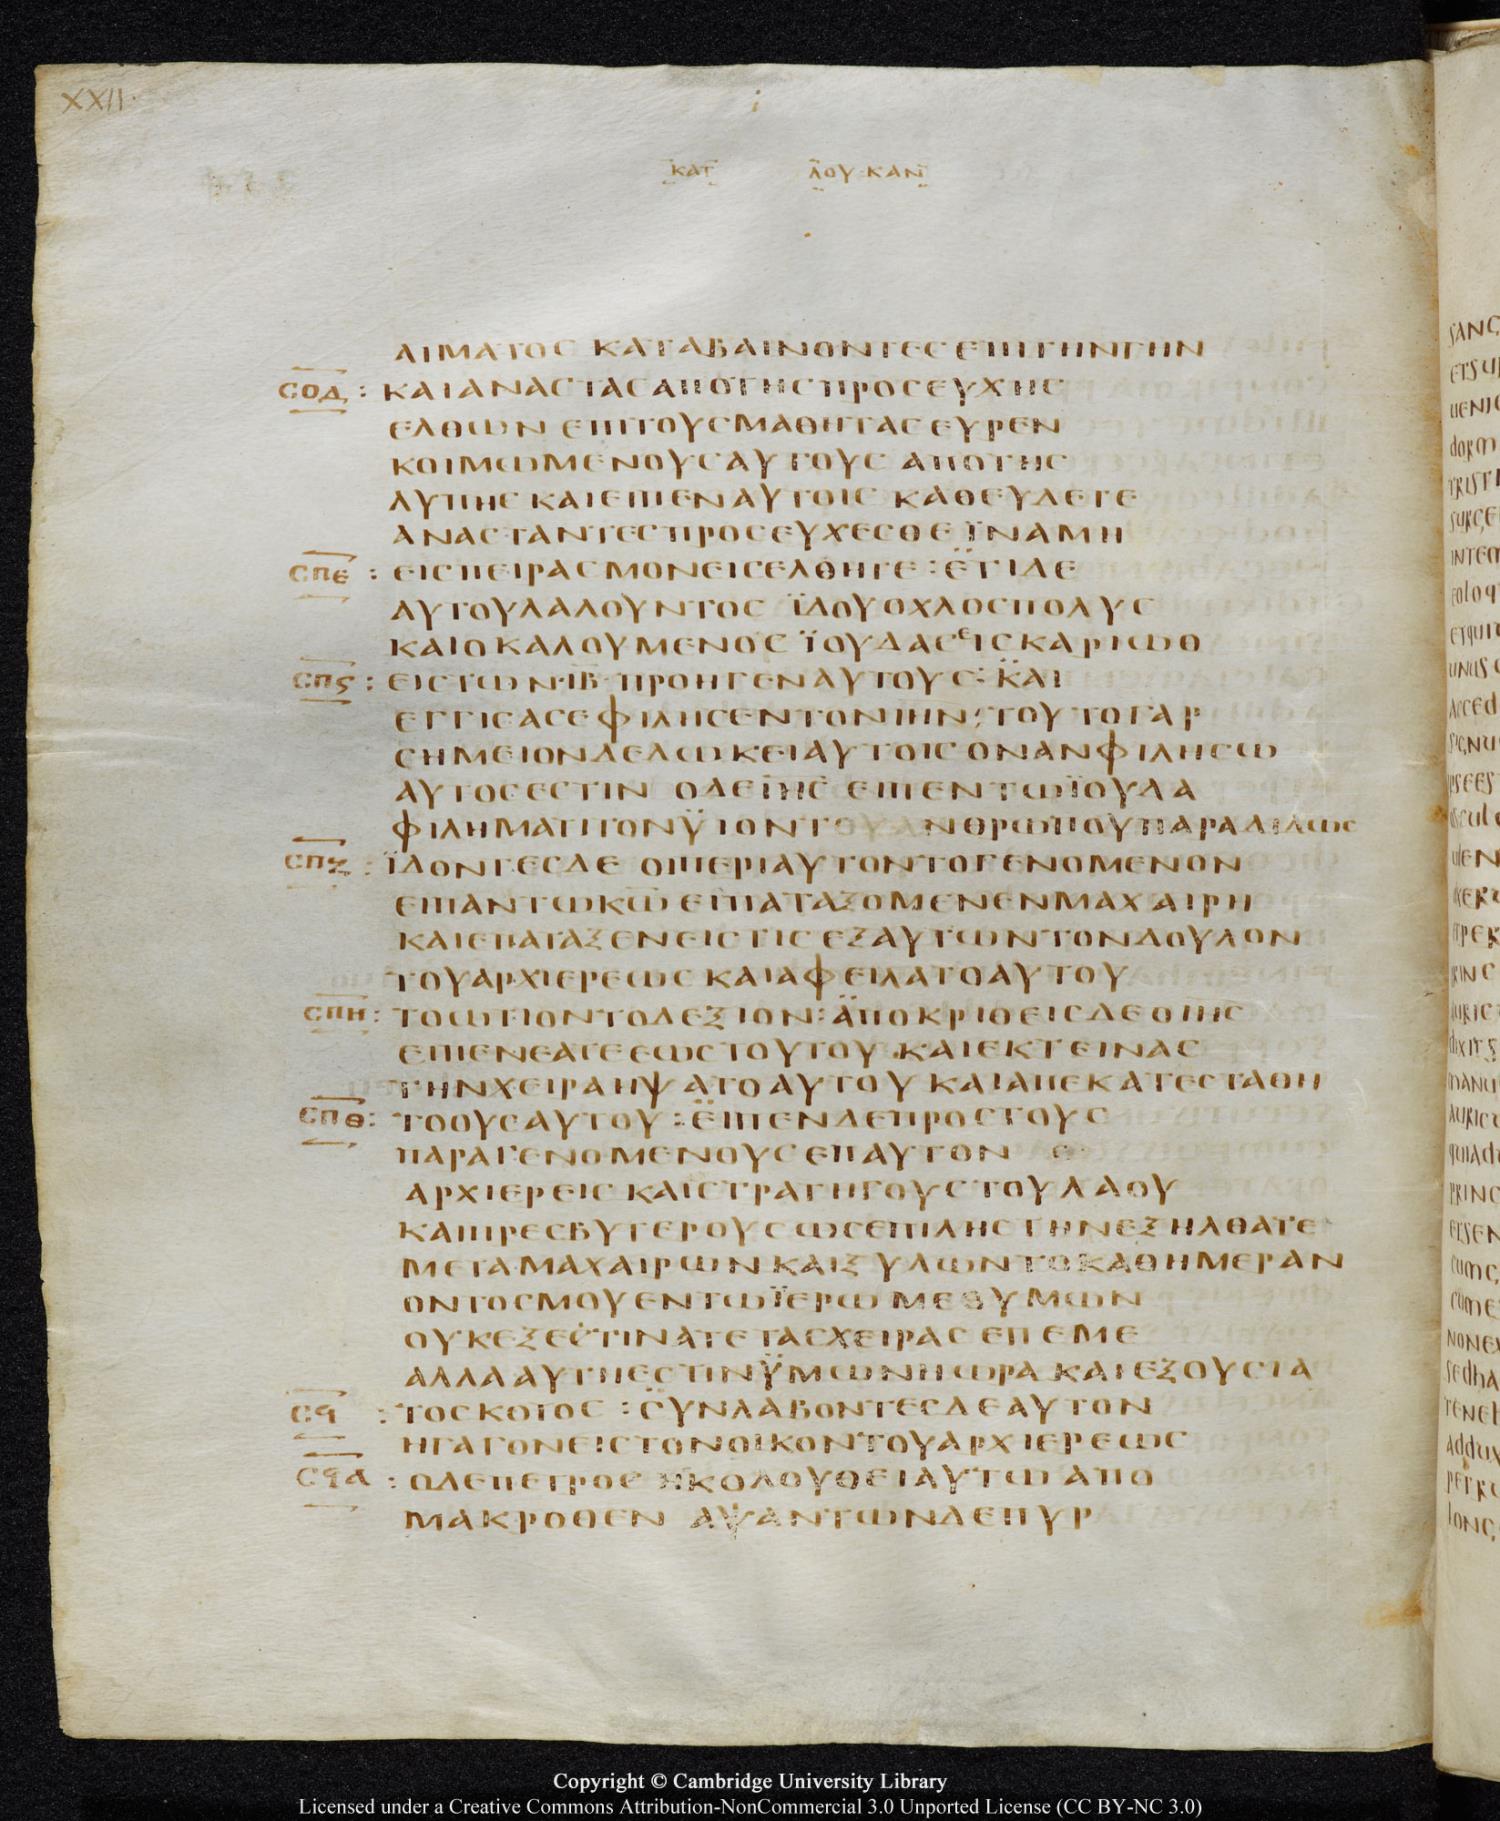 XXII
ΚΑΤ ΛΟΥΚΑΝ
ΑΙΜΑΤΟΣ ΚΑΤΑΒΑΙΝΟΝΤΕΣ ΕΠΙ ΤΗΝ ΓΗΝ
ΣΟΔ : ΚΑΙ ΑΝΑΣΤΑΣ ΑΠΟ ΤΗΣ ΠΡΟΣΕΥΧΗΣ
ΕΛΘΩΝ ΕΠΙ ΤΟΥΣ ΜΑΘΗΤΑΣ ΕΥΡΕΝ
ΚΟΙΜΩΜΕΝΟΥΣ ΑΥΤΟΥΣ ΑΠΟ ΤΗΣ
ΛΥΠΗΣ ΚΑΙ ΕΙΠΕΝ ΑΥΤΟΙΣ ΚΑΘΕΥΔΕΤΕ
ΑΝΑΣΤΑΝΤΕΣ ΠΡΟΣΕΥΧΕΣΘΕ ΪΝΑ ΜΗ
ΣΠΕ : ΕΙΣ ΠΕΙΡΑΣΜΟΝ ΕΙΣΕΛΘΗΤΕ : ΕΤΙ ΔΕ
ΑΥΤΟΥ ΛΑΛΟΥΝΤΟΣ ΪΔΟΥ ΟΧΛΟΣ ΠΟΛΥΣ
ΚΑΙ Ο ΚΑΛΟΥΜΕΝΟΣ ΪΟΥΔΑΣ ΕΙΣΚΑΡΙΩΘ
ΣΠϚ : ΕΙΣ ΤΩΝ ·ΙΒ· ΠΡΟΗΓΕΝ ΑΥΤΟΥΣ : ΚΑΙ
ΕΓΓΙΣΑΣ ΕΦΙΛΗΣΕΝ ΤΟΝ ΙΗΝ : ΤΟΥΤΟ ΓΑΡ
ΣΗΜΕΙΟΝ ΔΕΔΩΚΕΙ ΑΥΤΟΙΣ ΟΝ ΑΝ ΦΙΛΗΣΩ
ΑΥΤΟΣ ΕΣΤΙΝ Ο ΔΕ ΙΗΣ ΕΙΠΕΝ ΤΩ ΪΟΥΔΑ
ΦΙΛΗΜΑΤΙ ΤΟΝ ΫΙΟΝ ΤΟΥ ΑΝΘΡΩΠΟΥ ΠΑΡΑΔΙΔΩΣ
ΣΠΖ : ΪΔΟΝΤΕΣ ΔΕ ΟΙ ΠΕΡΙ ΑΥΤΟΝ ΤΟ ΓΕΝΟΜΕΝΟΝ
ΕΙΠΑΝ ΤΩ ΚΩ ΕΙ ΠΑΤΑΞΟΜΕΝ ΕΝ ΜΑΧΑΙΡΗ
ΚΑΙ ΕΠΑΤΑΞΕΝ ΕΙΣ ΤΙΣ ΕΞ ΑΥΤΩΝ ΤΟΝ ΔΟΥΛΟΝ
ΤΟΥ ΑΡΧΙΕΡΕΩΣ ΚΑΙ ΑΦΕΙΛΑΤΟ ΑΥΤΟΥ
ΣΠΗ : ΤΟ ΩΤΙΟΝ ΤΟ ΔΕΞΙΟΝ : ΑΠΟΚΡΙΘΕΙΣ ΔΕ Ο ΙΗΣ
ΕΙΠΕΝ ΕΑΤΕ ΕΩΣ ΤΟΥΤΟΥ ΚΑΙ ΕΚΤΕΙΝΑΣ
ΤΗΝ ΧΕΙΡΑ ΗΨΑΤΟ ΑΥΤΟΥ ΚΑΙ ΑΠΕΚΑΤΕΣΤΑΘΗ
ΣΠΘ : ΤΟ ΟΥΣ ΑΥΤΟΥ : ΕΙΠΕΝ ΔΕ ΠΡΟΣ ΤΟΥΣ
ΠΑΡΑΓΕΝΟΜΕΝΟΥΣ ΕΠ ΑΥΤΟΝ
ΑΡΧΙΕΡΕΙΣ ΚΑΙ ΣΤΡΑΤΗΓΟΥΣ ΤΟΥ ΛΑΟΥ
ΚΑΙ ΠΡΕΣΒΥΤΕΡΟΥΣ ΩΣ ΕΠΙ ΛΗΣΤΗΝ ΕΞΗΛΘΑΤΕ
ΜΕΤΑ ΜΑΧΑΙΡΩΝ ΚΑΙ ΞΥΛΩΝ ΤΟ ΚΑΘ ΗΜΕΡΑΝ
ΟΝΤΟΣ ΜΟΥ ΕΝ ΤΩ ΪΕΡΩ ΜΕΘ ΥΜΩΝ
ΟΥΚ ΕΞΕΣΤΙΝΑΤΕ ΤΑΣ ΧΕΙΡΑΣ ΕΠ ΕΜΕ
ΑΛΛΑ ΑΥΤΗ ΕΣΤΙΝ ΫΜΩΝ Η ΩΡΑ ΚΑΙ ΕΞΟΥΣΙΑ
ΣϤ : ΤΟ ΣΚΟΤΟΣ : ΣΥΝΛΑΒΟΝΤΕΣ ΔΕ ΑΥΤΟΝ
ΗΓΑΓΟΝ ΕΙΣ ΤΟΝ ΟΙΚΟΝ ΤΟΥ ΑΡΧΙΕΡΕΩΣ
ΣϤΑ : Ο ΔΕ ΠΕΤΡΟΣ ΗΚΟΛΟΥΘΕΙ ΑΥΤΩ ΑΠΟ
ΜΑΚΡΟΘΕΝ ΑΨΑΝΤΩΝ ΔΕ ΠΥΡ
Copyright © Cambridge University Library
Licensed under a Creative Commons Attribution-NonCommercial 3.0 Unported License (CC BY-NC 3.0)